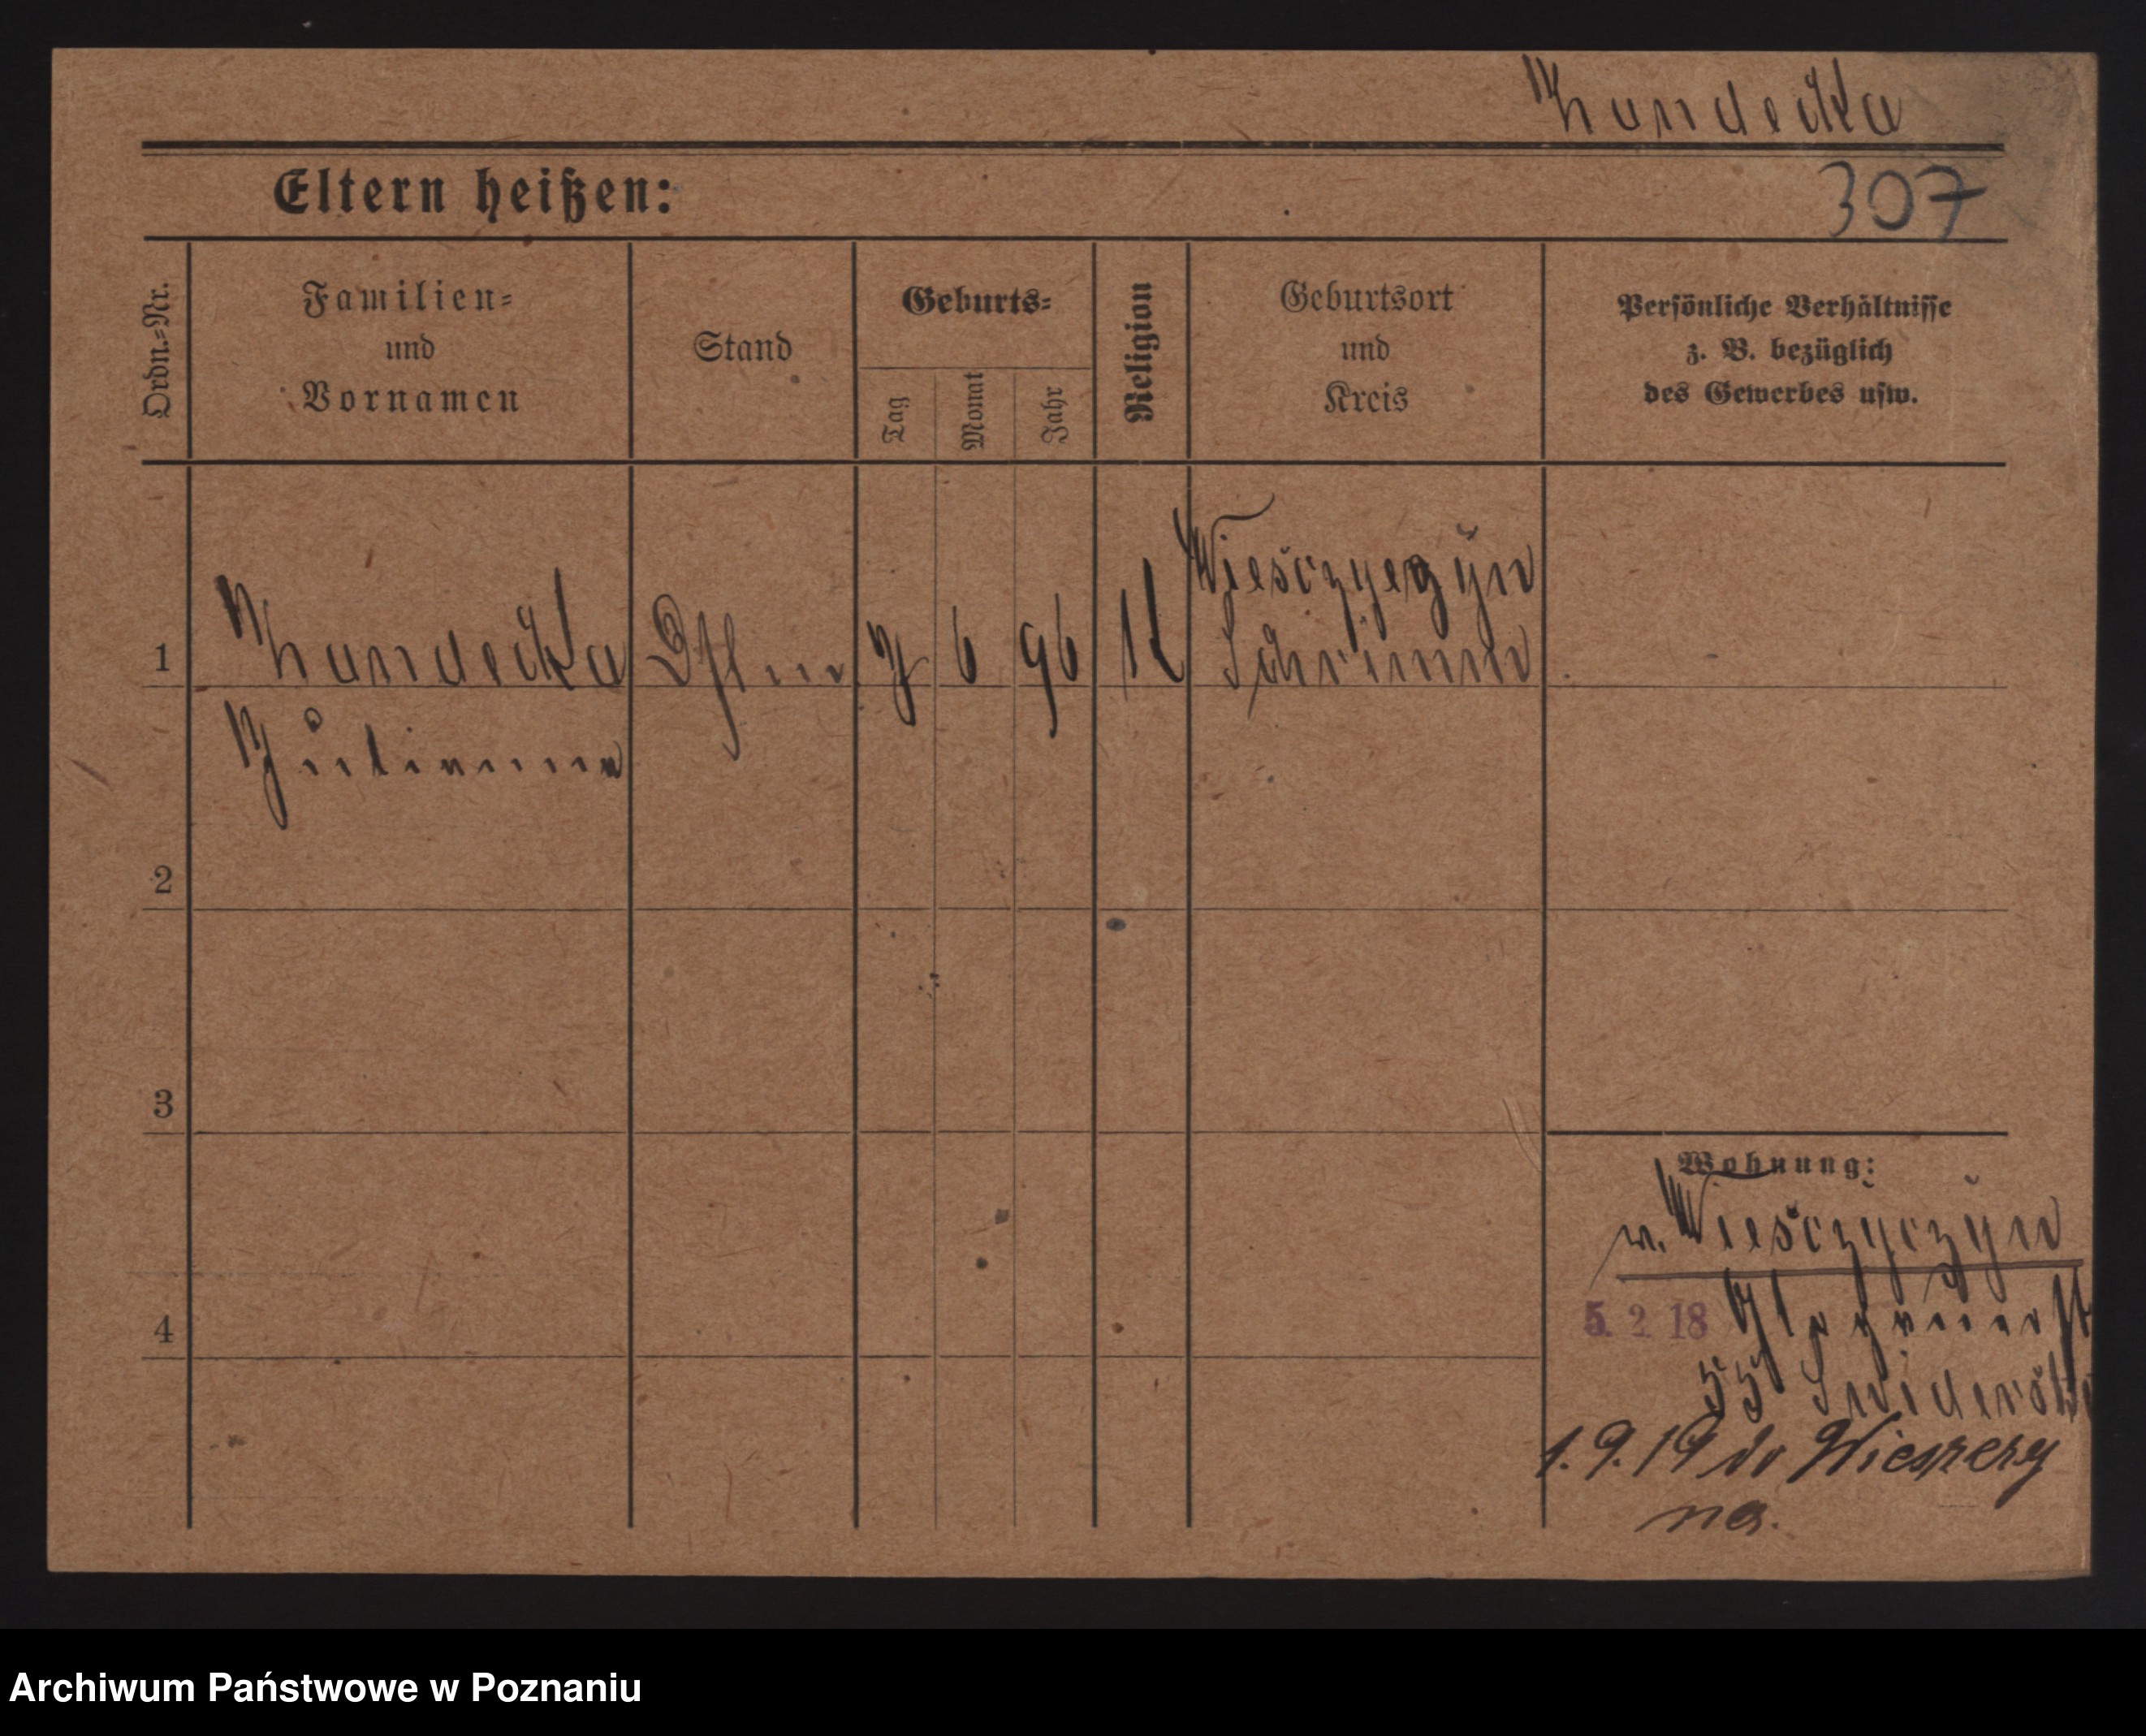 Kundecka
307
Eltern heißen:
Ordn.=Nr.
Familien=
und
Vornamen
Stand
Geburts=
Tag
Monat
Jahr
Religion
Geburtsort
und
Kreis
Persönliche Verhältnisse
z. B. bezüglich
des Gewerbes usw.
1
Kundecka
7
6
96
K
Wiesczyczyn
Schrimm
Julianna
2
3
4
Wohnung:
v. Wiesczyczyn
5. 2. 18
1. 9. 19 do Wieszczy
na.
Archiwum Państwowe w Poznaniu